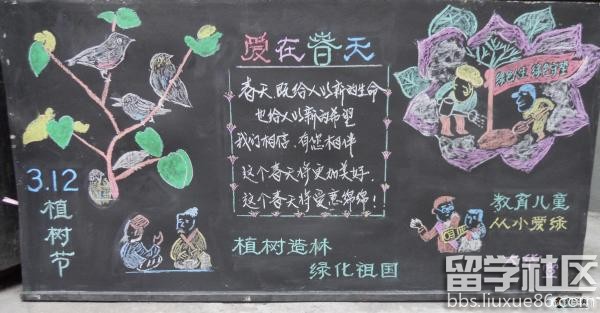 爱在春天
春天既给人以新的生命
也给人以新的希望
我们相信,有您相伴
这个春天将更加美好,
这个春天将爱意绵绵!
3.12
植树节
植树造林
绿化祖国
教育儿童
从小爱绿
留学社区
bbs.liuxue86.com